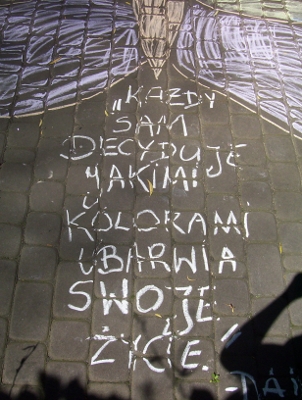 „KAŻDY
SAM
DECYDUJE
JAKIMI
KOLORAMI
UBARWIA
SWOJE
ŻYCIE."